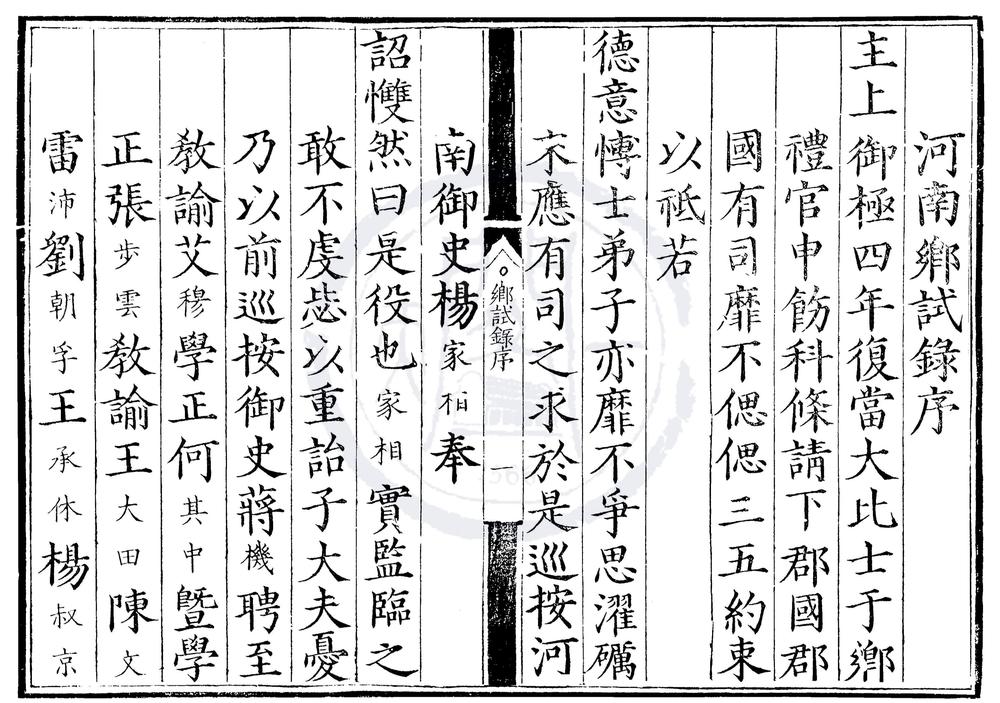 河南鄉試錄序
主上御極四年復當大比士于鄉
禮官申飭科條請下郡國郡
國有司靡不偲偲三五約束
以祗若
德意慱士弟子亦靡不爭思濯礪
來應有司之求於是巡按河
鄉試錄序
一
南御史楊家相奉
詔戄然曰是役也家相實監臨之
敢不虔恷以重詒子大夫憂
乃以前巡按御史蔣機聘至
教諭艾穆學正何其中曁學
正張步雲教諭王大田陳文
雷沛劉朝孚王承休楊叔京